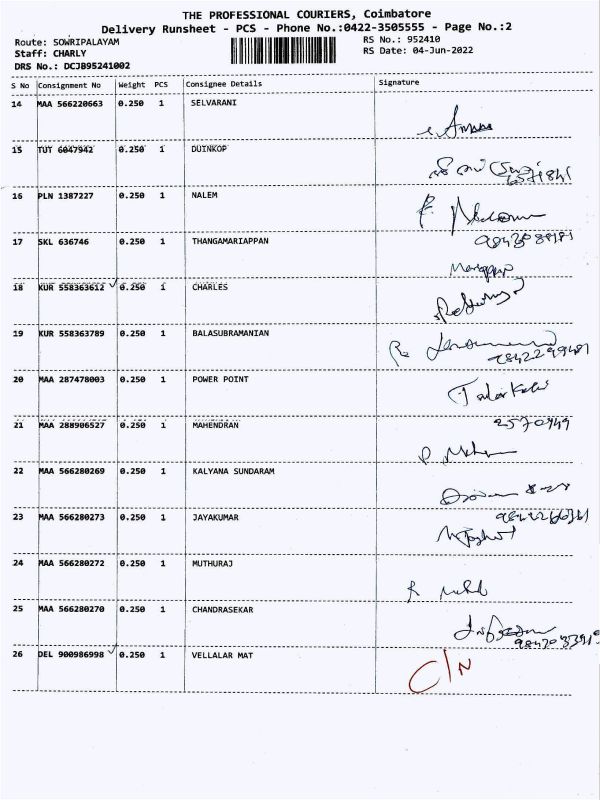 THE PROFESSIONAL COURIERS, Coimbatore
Delivery Runsheet - PCS - Phone No.:0422-3505555 - Page No.:2
Route: SOWRIPALAYAM RS No.: 952410
Staff: CHARLY RS Date: 04-Jun-2022
DRS No.: DCJB95241002
S No Consignment No Weight PCS Consignee Details Signature
14 MAA 566220663 0.250 1 SELVARANI
15 TUT 6047942 0.250 1 DUINKOP
16 PLN 1387227 0.250 1 NALEM
17 SKL 636746 0.250 1 THANGAMARIAPPAN
18 KUR 558363612 0.250 1 CHARLES
19 KUR 558363789 0.250 1 BALASUBRAMANIAN
20 MAA 287478003 0.250 1 POWER POINT
21 MAA 288906527 0.250 1 MAHENDRAN
22 MAA 566280269 0.250 1 KALYANA SUNDARAM
23 MAA 566280273 0.250 1 JAYAKUMAR
24 MAA 566280272 0.250 1 MUTHURAJ
25 MAA 566280270 0.250 1 CHANDRASEKAR
26 DEL 900986998 0.250 1 VELLALAR MAT C/N